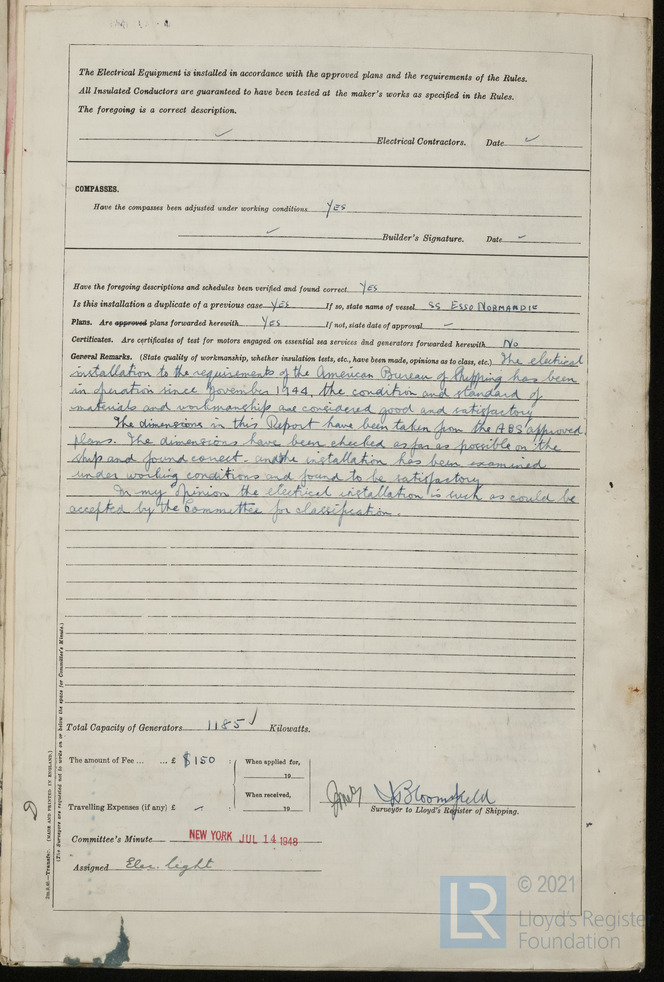 The Electrical Equipment is installed in accordance with the approved plans and the requirements of the Rules.
All Insulated Conductors are guaranteed to have been tested at the maker's works as specified in the Rules.
The foregoing is a correct description.
Electrical Contractors. Date
COMPASSES.
Have the compasses been adjusted under working conditions YES
Builder's Signature. Date
Have the foregoing descriptions and schedules been verified and found correct YES
Is this installation a duplicate of a previous case YES If so, state name of vessel SS ESSO NORMANDIE
Plans. Are approved plans forwarded herewith YES If not, state date of approval
Certificates. Are certificates of test for motors engaged on essential sea services and generators forwarded herewith No
General Remarks. (State quality of workmanship, whether insulation tests, etc., have been made, opinions as to class, etc.) The electrical
installation to the requirements of the American Bureau of Shipping has been
in operation since November 1944, the condition and standard of
materials and workmanship are considered good and satisfactory
The dimensions in this Report have been taken from the ABS approved
plans. The dimensions have been checked as far as possible on the
ship and found correct and the installation has been examined
under working conditions and found to be satisfactory
In my opinion the electrical installation is such as could be
accepted by the Committee for classification.
Total Capacity of Generators 1185 Kilowatts.
The amount of Fee ... ... £ $150 : : When applied for,
19
When received,
Travelling Expenses (if any) £ : : 19
Bloomfield
Surveyor to Lloyd's Register of Shipping.
Committee's Minute NEW YORK JUL 14 1948
Assigned Elec. light
(MADE AND PRINTED IN ENGLAND.)
(The Surveyors are requested not to write on or below the space for Committee's Minute.)
© 2021
LR
Lloyd's Register
Foundation